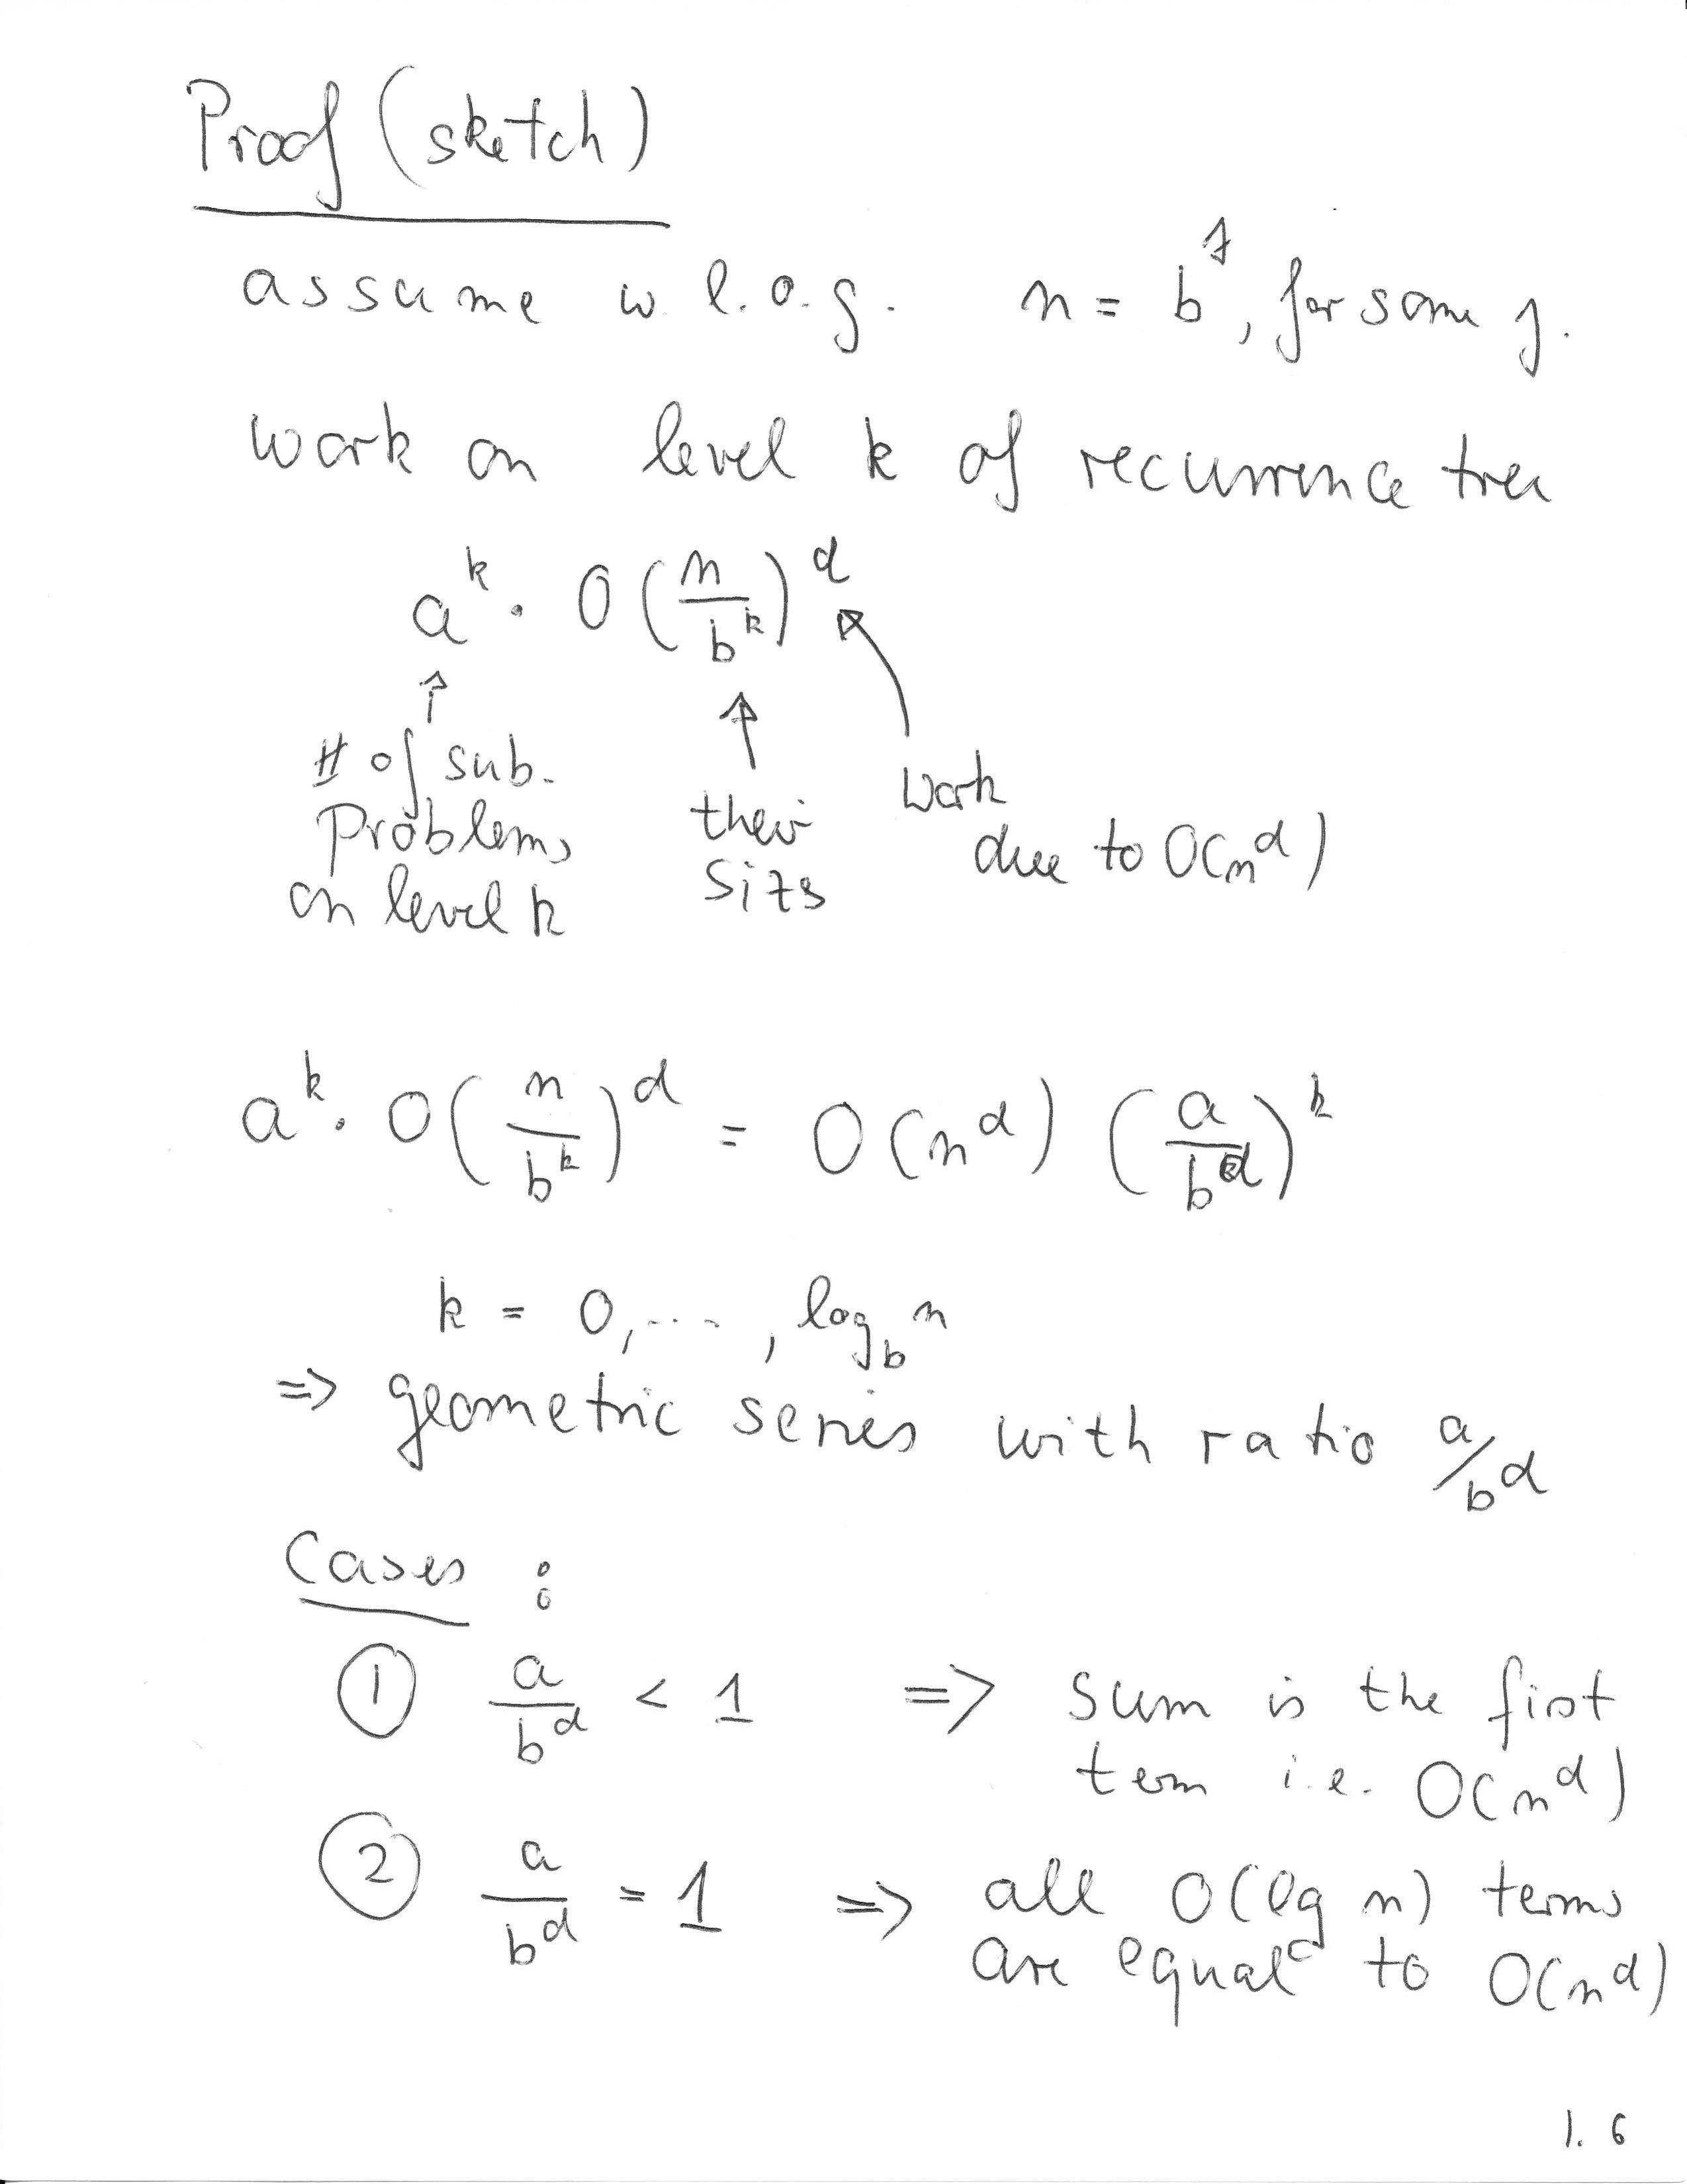 Proof (sketch)
assume w.l.o.g. n = b^j, for some j.
work on level k of recurrence tree
a^k · O(n/b^k)^d
# of sub-
problems
on level k
their
size
work
due to O(n^d)
a^k · O(n/b^k)^d = O(n^d) (a/b^d)^k
k = 0, ..., log_b n
=> geometric series with ratio a/b^d
Cases :
① a/b^d < 1 => sum is the first
term i.e. O(n^d)
② a/b^d = 1 => all O(log n) terms
are equal to O(n^d)
1.6